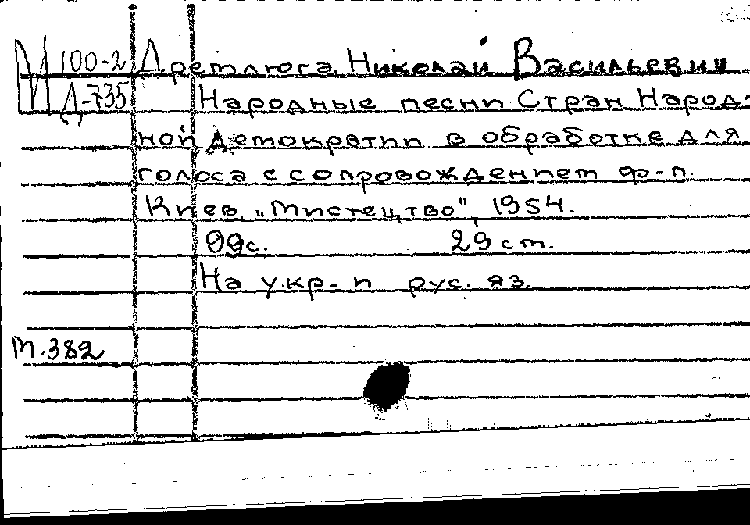 М 100-2 Дремлюга Николай Васильевич
Д-735 Народные песни Стран Народ-
ной Демократии в обработке для
голоса с сопровождением ф-п.
Киев, "Мистецтво", 1954.
99с. 29 см.
На укр. и рус. яз.
м.382